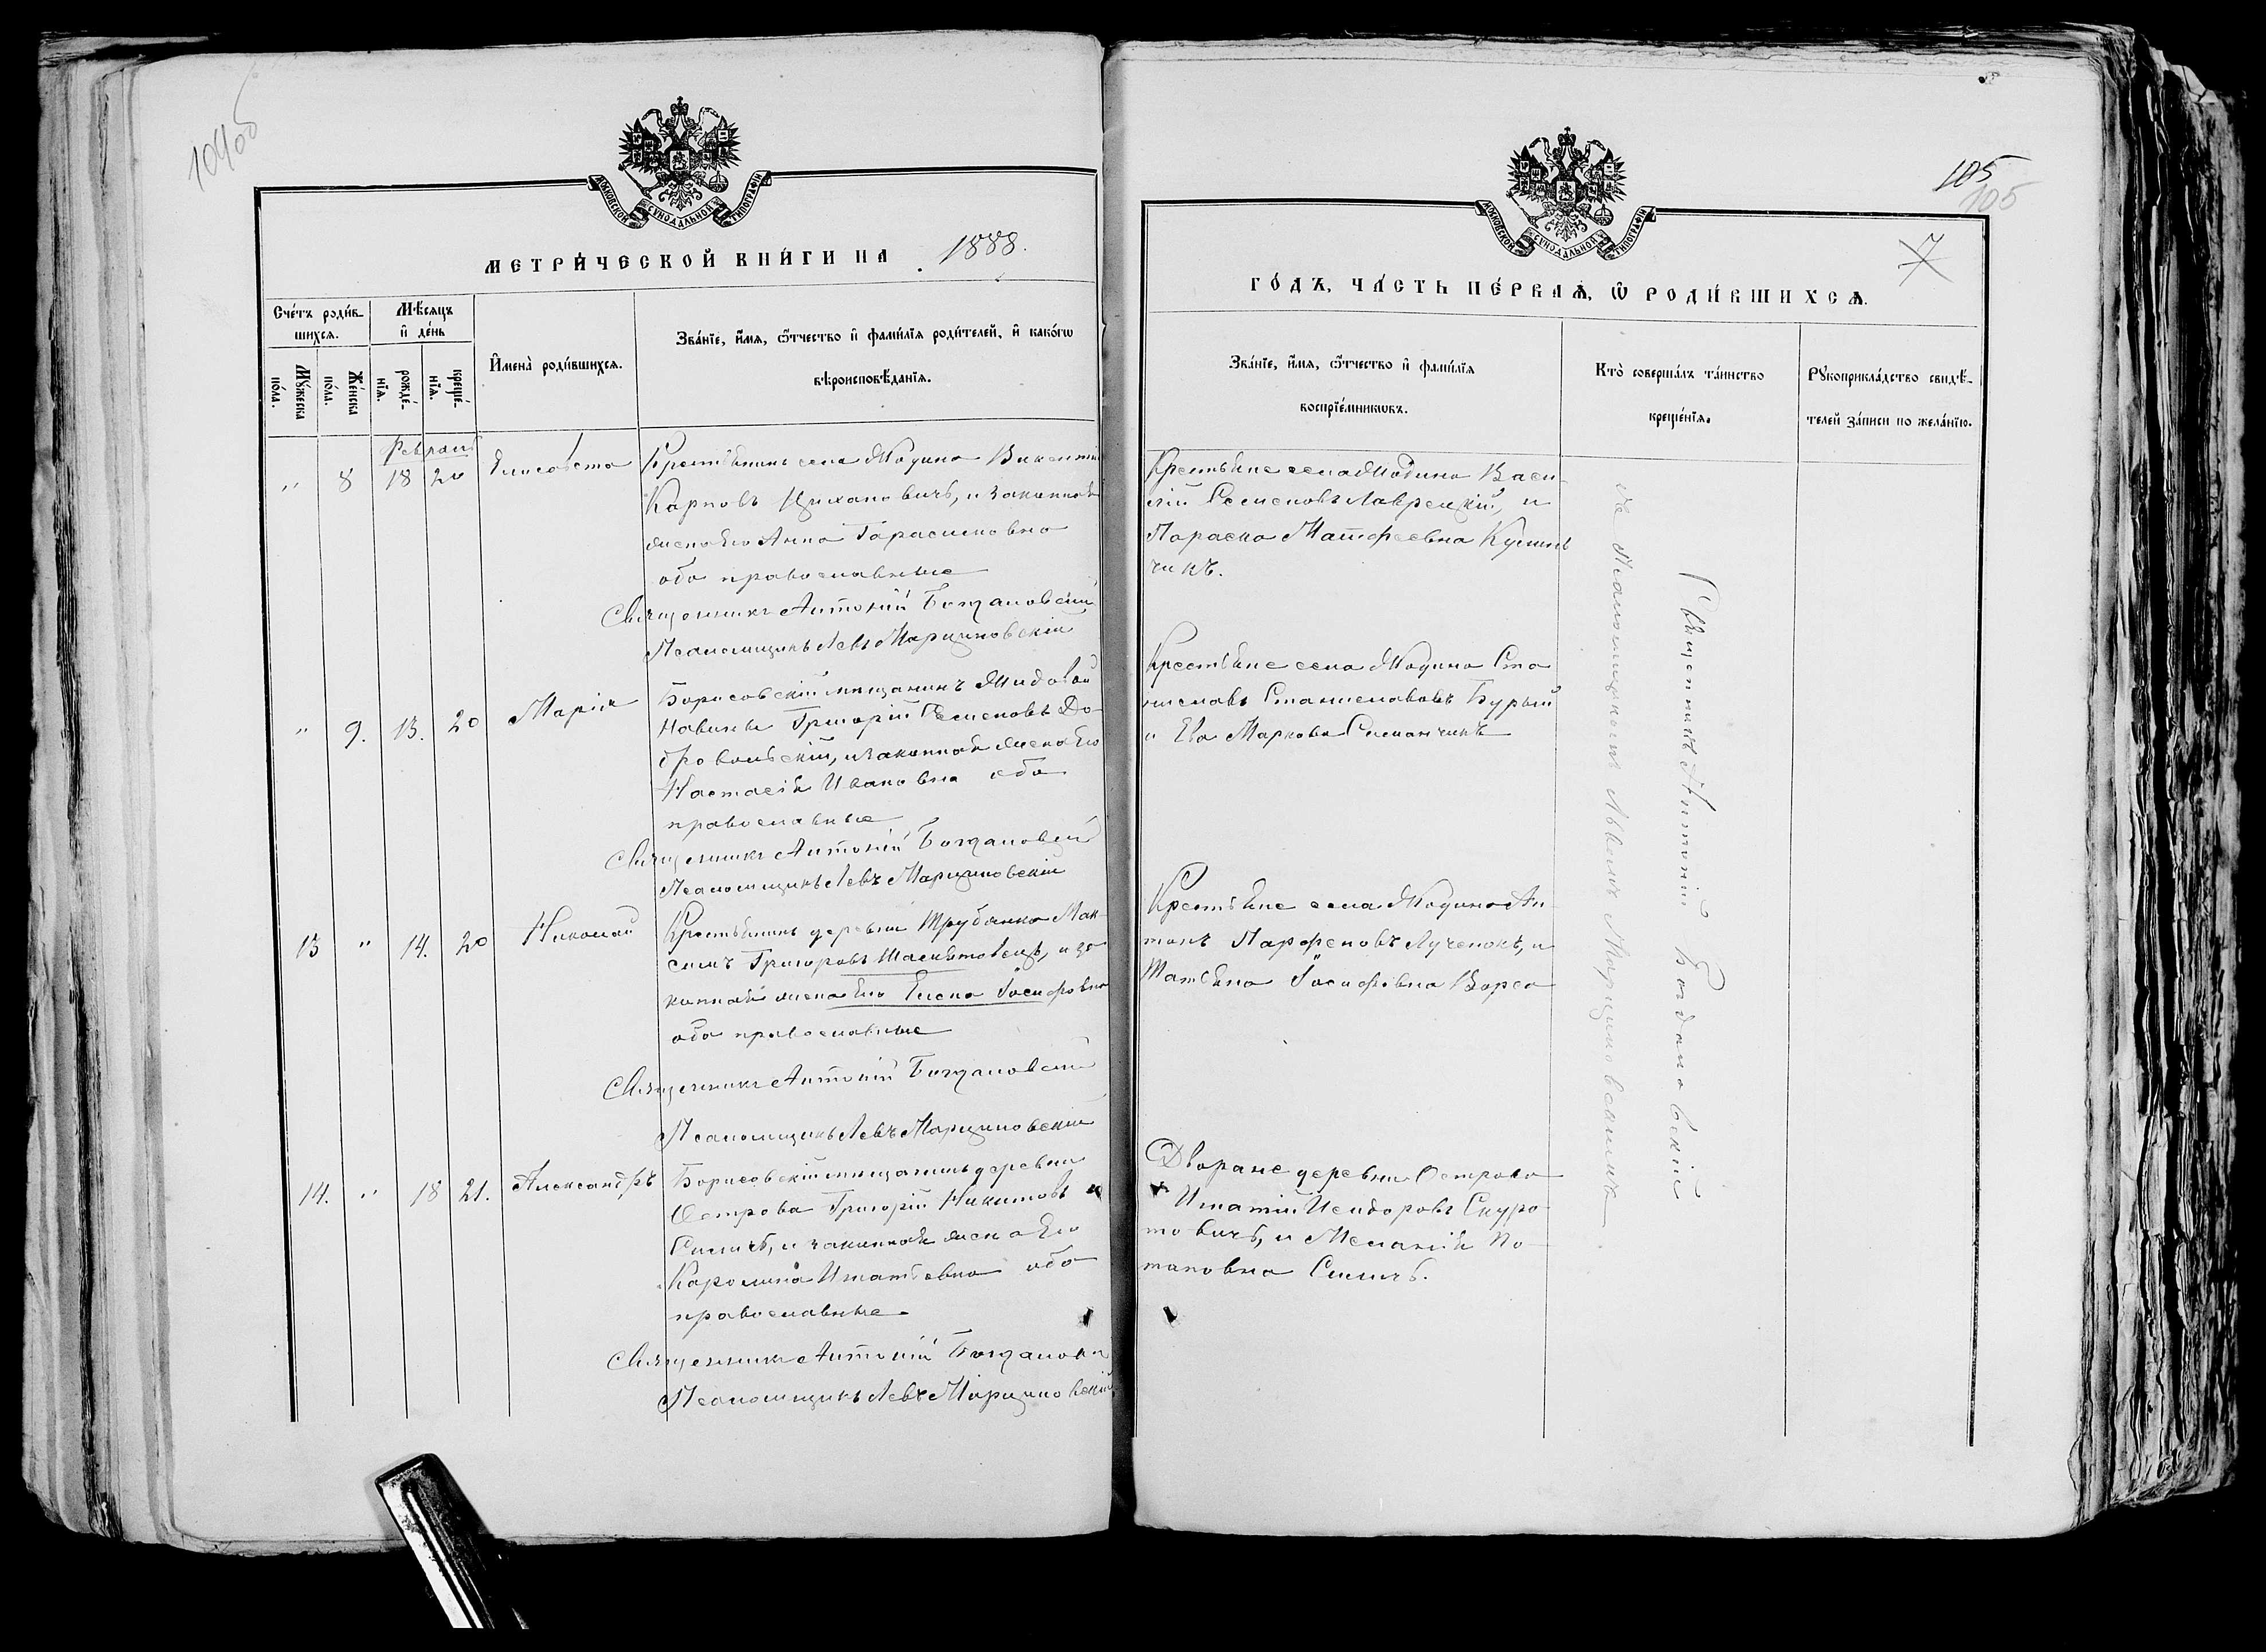 104об
МОСКОВСКОЙ СѴНОДАЛЬНОЙ ТИПОГРАФІИ
МЕТРИ́ЧЕСКОЙ КНИ́ГИ НА 1888.
Сче́тъ роди́в-
шихсѧ.
Мѣ́сѧцъ
и҆ де́нь
И҆мена̀ роди́вшихсѧ.
Зва́нїе, и҆́мѧ, ѻ҆́тчество и҆ фами́лїѧ роди́телей, и҆ како́гѡ
вѣроисповѣ́данїѧ.
Мꙋ́жеска
по́ла.
Же́нска
по́ла.
рожде́-
нїѧ.
креще́-
нїѧ.
Февраль
" 8 18 20 Елисавета
Крестьянинъ села Жодина Викентій
Карповъ Цихановичъ, и законная
жена его Анна Гарасимовна
оба православные
Священникъ Антоній Богдановскій
Псаломщикъ Левъ Марциновскій
" 9. 13. 20 Марія
Борисовскій мещанинъ Жидовой
Навины Григорій Семеновъ До-
бровольскій, и законная жена его
Настасія Ивановна оба
православные
Священникъ Антоній Богдановскій
Псаломщикъ Левъ Марциновскій
13 " 14. 20 Николай
Крестьянинъ деревни Трубянка Мак-
симъ Григоровъ и за-
конная жена его Елена Іосифовна
оба православные
Священникъ Антоній Богдановскій
Псаломщикъ Левъ Марциновскій
14. " 18 21. Александръ
Борисовскій мещанинъ деревни
Острова Григорій Никитовъ
Силичъ, и законная жена его
Каролина Игнатьевна оба
православные.
Священникъ Антоній Богдановскій
Псаломщикъ Левъ Марциновскій
105
105
7
МОСКОВСКОЙ СѴНОДАЛЬНОЙ ТИПОГРАФІИ
ГО́ДЪ, ЧА́СТЬ ПЕ́РВАѦ, Ѽ РОДИ́ВШИХСѦ.
Зва́нїе, и҆́мѧ, ѻ҆́тчество и҆ фами́лїѧ
воспрїе́мникѡвъ.
Кто̀ соверша́лъ та́инство
креще́нїѧ.
Рꙋкоприкла́дство свидѣ́-
телей за́писи по жела́нїю.
Крестьяне села Жодина Васи-
лій Семеновъ Лаврецкій, и
Параска Матфеевна Кузмин
чикъ.
Крестьяне села Жодина Ста
ниславъ Станиславовъ Бурый
и Ева Маркова Симанчикъ
Крестьяне села Жодина Ан-
тонъ Парфеновъ Лученокъ, и
Татьяна Іосифовна Ворса
Дворяне деревни Острова
Игнатій Исидоровъ Скуро-
товичъ, и Меланія По-
таповна Силичъ.
Священникъ Антоній Богдановскій
съ Псаломщикомъ Львомъ Марциновскимъ.